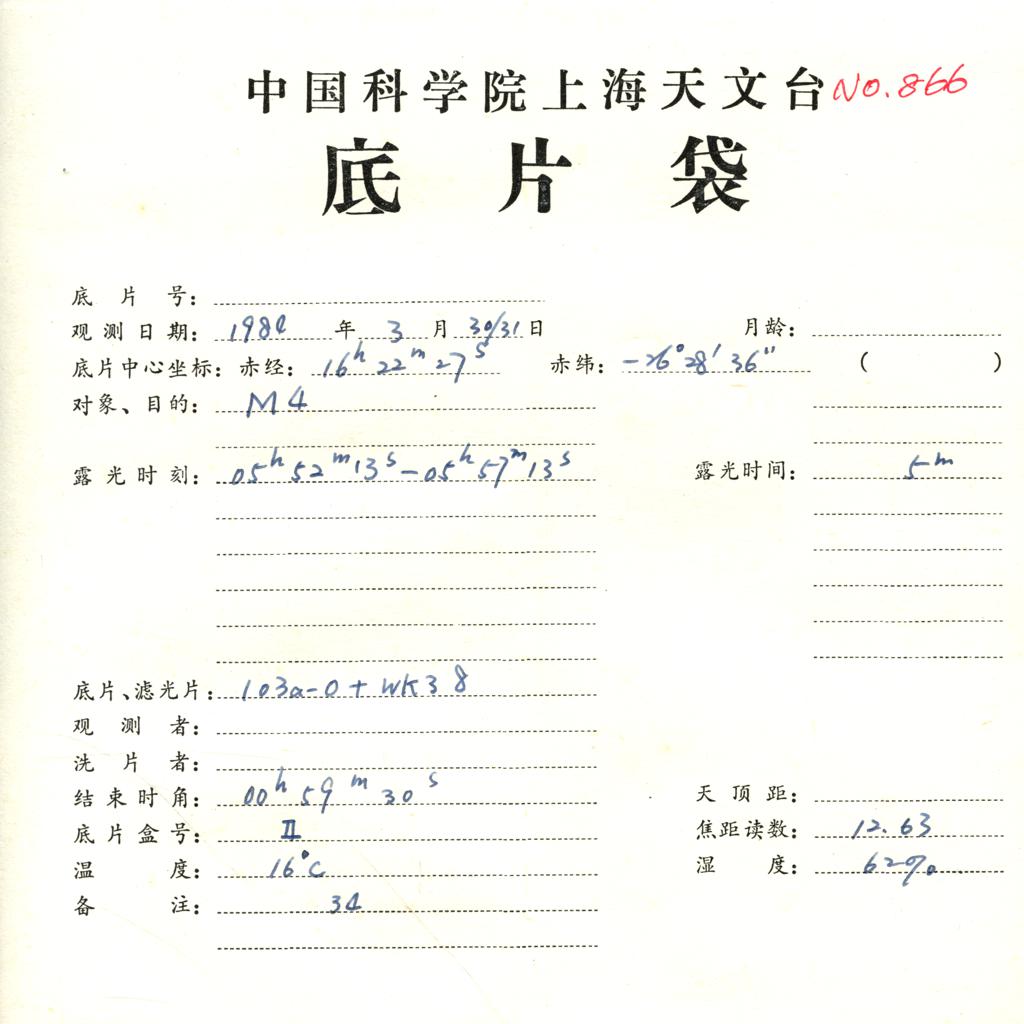 中国科学院上海天文台 NO.866
底片袋
底片号:
观测日期: 1984年3月30/31日 月龄:
底片中心坐标: 赤经: 16h22m27s 赤纬: -26°28′36″ ( )
对象、目的: M4
露光时刻: 05h52m13s-05h57m13s 露光时间: 5m
底片、滤光片: 103a-O+WK38
观测者:
洗片者:
结束时角: 00h59m30s 天顶距:
底片盒号: II 焦距读数: 12.63
温度: 16°C 湿度: 62%
备注: 34